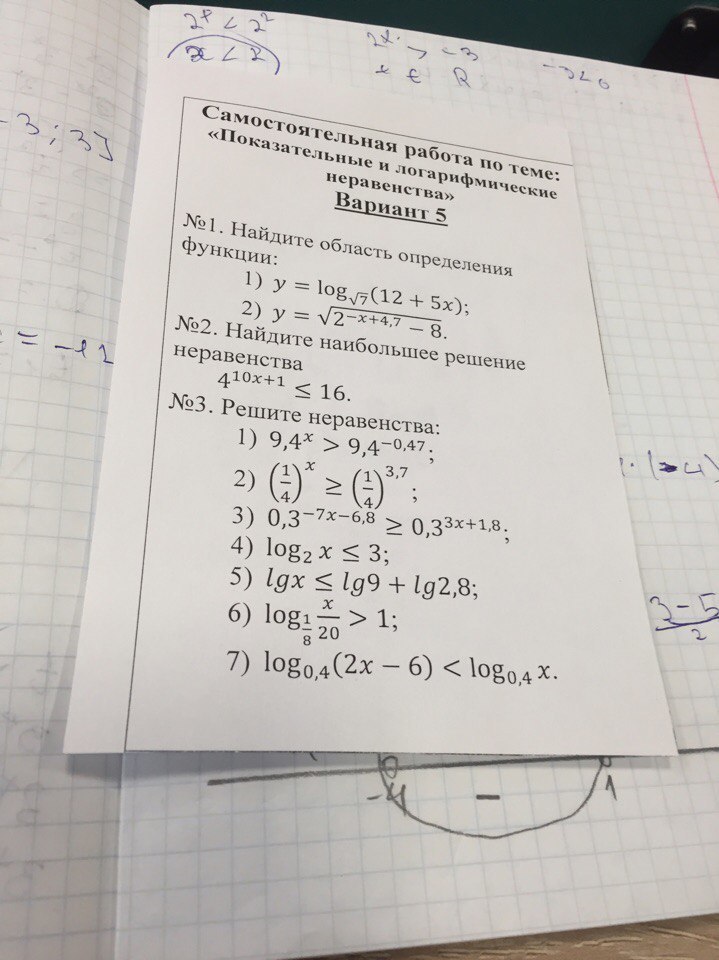 2ˣ < 2²
x < 2
2ˣ > -3
x ∈ R
-3<0
-3 ; 3]
Самостоятельная работа по теме:
«Показательные и логарифмические
неравенства»
Вариант 5
№1. Найдите область определения
функции:
1) y = log_{√7}(12 + 5x);
2) y = √(2^{−x+4,7} − 8).
= -12
№2. Найдите наибольшее решение
неравенства
4^{10x+1} ≤ 16.
№3. Решите неравенства:
1) 9,4^x > 9,4^{−0,47};
2) (1/4)^x ≥ (1/4)^{3,7};
3) 0,3^{−7x−6,8} ≥ 0,3^{3x+1,8};
4) log₂ x ≤ 3;
5) lgx ≤ lg9 + lg2,8;
6) log_{1/8} x/20 > 1;
7) log_{0,4}(2x − 6) < log_{0,4} x.
3-5
2
-4 − 1